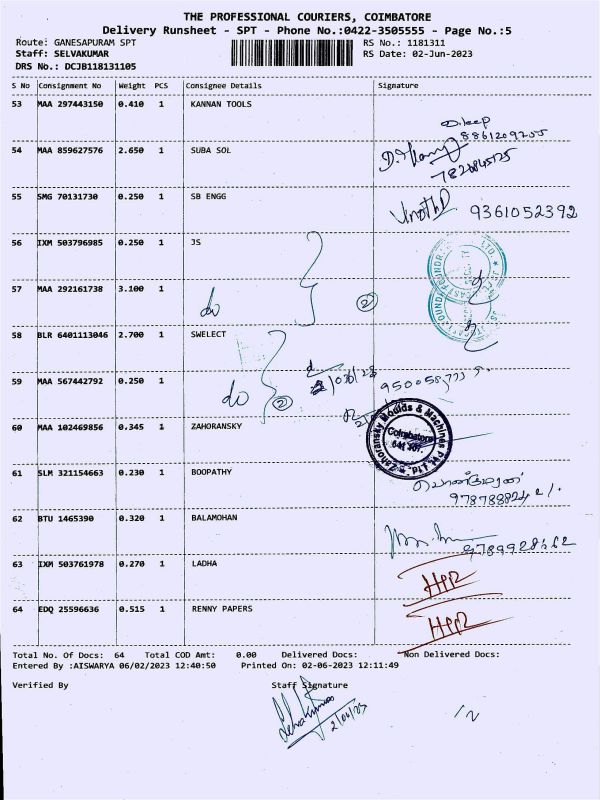 THE PROFESSIONAL COURIERS, COIMBATORE
Delivery Runsheet - SPT - Phone No.:0422-3505555 - Page No.:5
Route: GANESAPURAM SPT RS No.: 1181311
Staff: SELVAKUMAR RS Date: 02-Jun-2023
DRS No.: DCJB118131105
S No Consignment No Weight PCS Consignee Details Signature
53 MAA 297443150 0.410 1 KANNAN TOOLS
Dileep
54 MAA 859627576 2.650 1 SUBA SOL
55 SMG 70131730 0.250 1 SB ENGG
Vinoth 9361052392
56 IXM 503796985 0.250 1 JS
57 MAA 292161738 3.100 1
do 2
58 BLR 6401113046 2.700 1 SWELECT
59 MAA 567442792 0.250 1
do 2
60 MAA 102469856 0.345 1 ZAHORANSKY
Zahoransky Moulds & Machines P
Coimbatore
641 107.
61 SLM 321154663 0.230 1 BOOPATHY
62 BTU 1465390 0.320 1 BALAMOHAN
63 IXM 503761978 0.270 1 LADHA
64 EDQ 25596636 0.515 1 RENNY PAPERS
Total No. Of Docs: 64 Total COD Amt: 0.00 Delivered Docs: Non Delivered Docs:
Entered By :AISWARYA 06/02/2023 12:40:50 Printed On: 02-06-2023 12:11:49
Verified By Staff Signature
Selvakumar
2/06/23